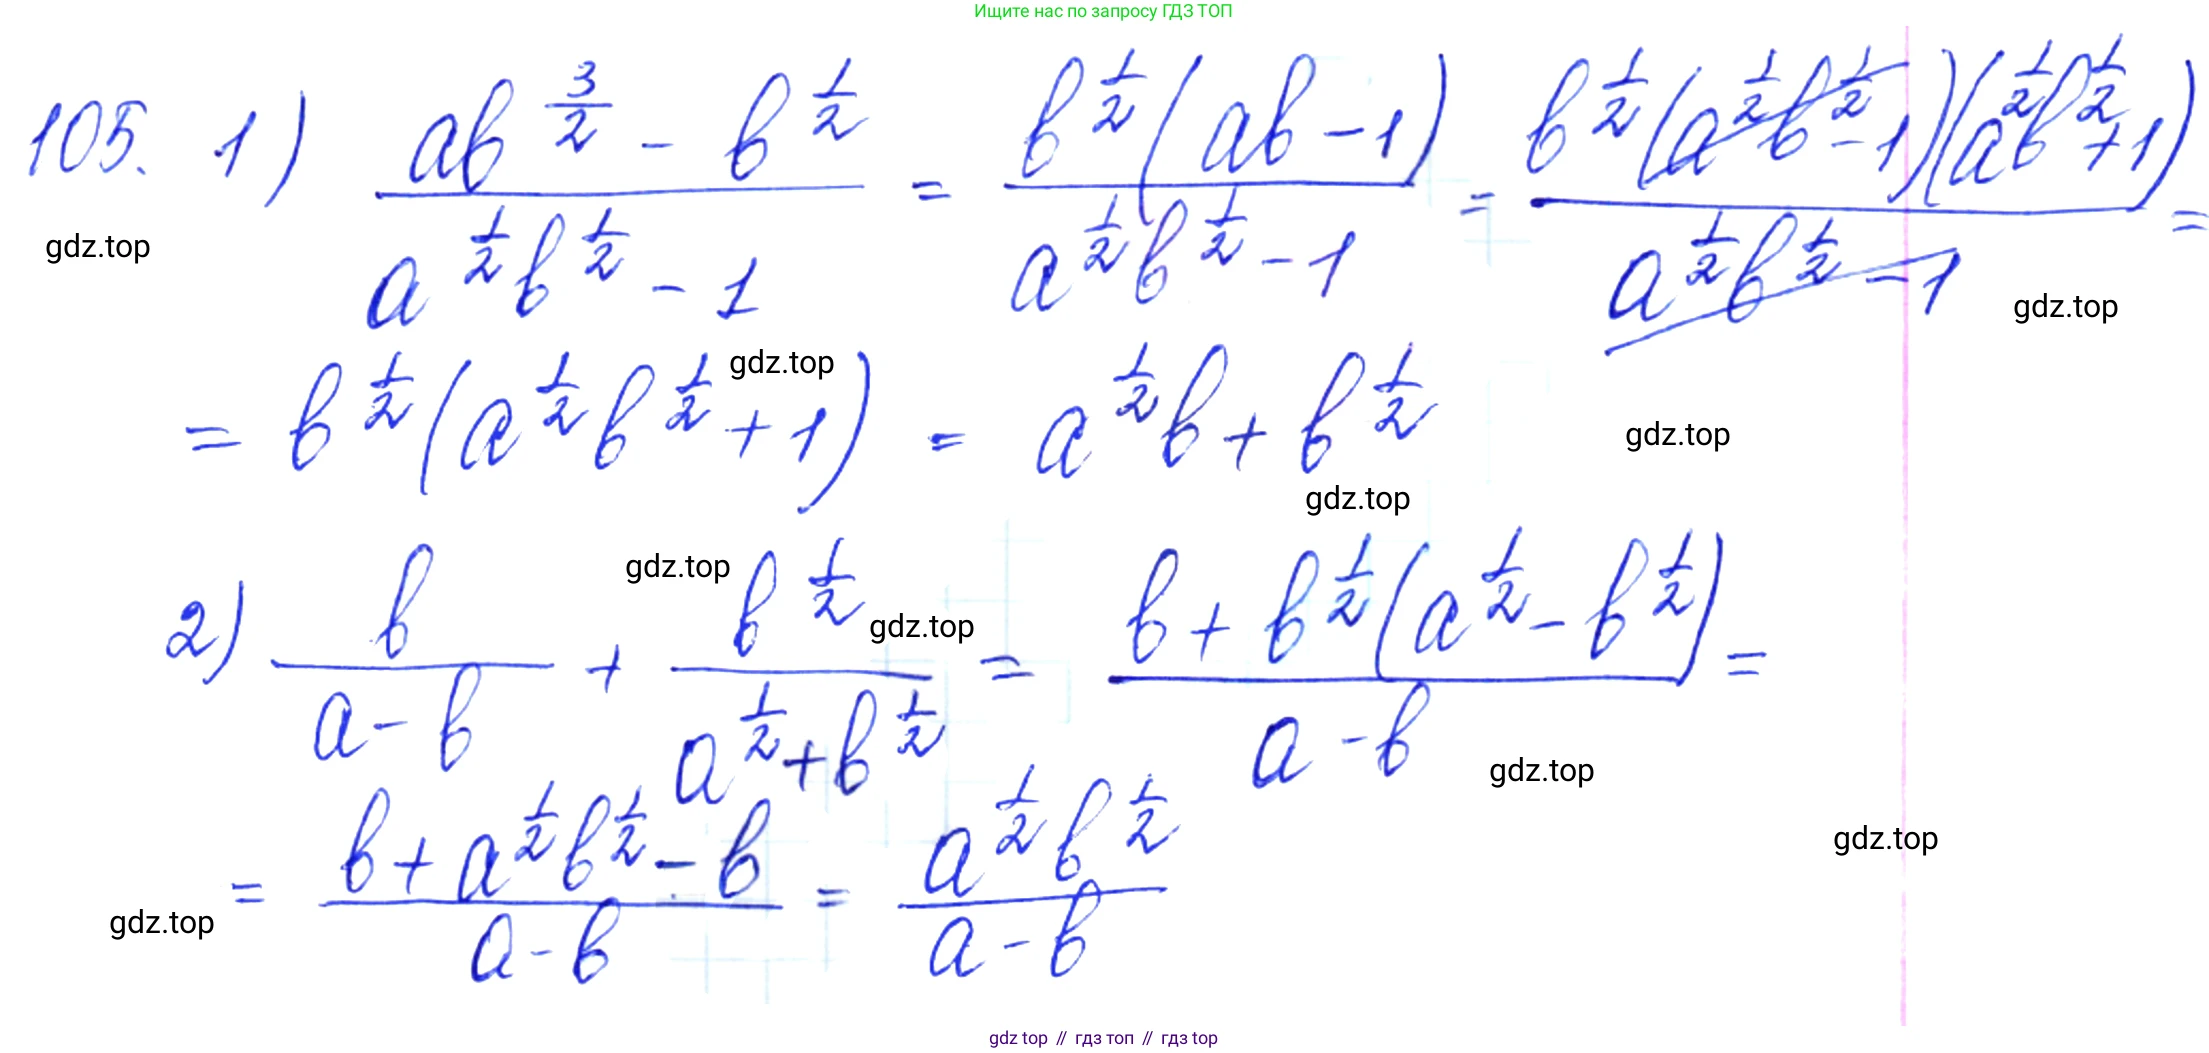 Ищите нас по запросу ГДЗ ТОП
105. 1) (ab^(3/2) - b^(1/2))/(a^(1/2)b^(1/2) - 1) = (b^(1/2)(ab - 1))/(a^(1/2)b^(1/2) - 1) = (b^(1/2)(a^(1/2)b^(1/2) - 1)(a^(1/2)b^(1/2) + 1))/(a^(1/2)b^(1/2) - 1) =
gdz.top
gdz.top
gdz.top
= b^(1/2)(a^(1/2)b^(1/2) + 1) = a^(1/2)b + b^(1/2)
gdz.top
gdz.top
gdz.top
2) b/(a - b) + b^(1/2)/(a^(1/2) + b^(1/2)) = (b + b^(1/2)(a^(1/2) - b^(1/2)))/(a - b) =
gdz.top
gdz.top
gdz.top
= (b + a^(1/2)b^(1/2) - b)/(a - b) = (a^(1/2)b^(1/2))/(a - b)
gdz.top
gdz top // гдз топ // гдз top